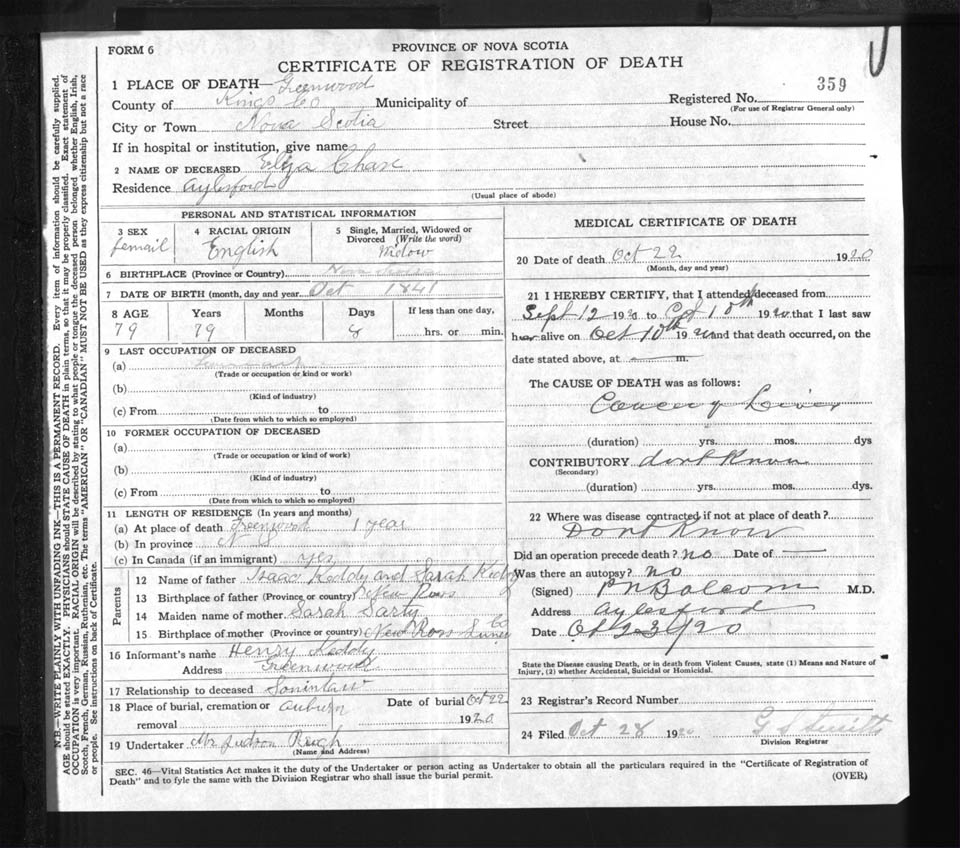 FORM 6
PROVINCE OF NOVA SCOTIA
CERTIFICATE OF REGISTRATION OF DEATH
359
1 PLACE OF DEATH— Greenwood
County of Kings Co Municipality of Registered No.
(For use of Registrar General only)
City or Town Nova Scotia Street House No.
If in hospital or institution, give name
2 NAME OF DECEASED Eliza Chase
Residence Aylesford
(Usual place of abode)
PERSONAL AND STATISTICAL INFORMATION
3 SEX 4 RACIAL ORIGIN 5 Single, Married, Widowed or Divorced (Write the word)
femail English Widow
6 BIRTHPLACE (Province or Country) Nova Scotia
7 DATE OF BIRTH (month, day and year) Oct 1841
8 AGE Years Months Days If less than one day,
79 79 8 hrs. or min.
9 LAST OCCUPATION OF DECEASED
(a)
(Trade or occupation or kind or work)
(b)
(Kind of industry)
(c) From to
(Date from which to which so employed)
10 FORMER OCCUPATION OF DECEASED
(a)
(Trade or occupation or kind of work)
(b)
(Kind of industry)
(c) From to
(Date from which to which so employed)
11 LENGTH OF RESIDENCE (In years and months)
(a) At place of death Greenwood 1 year
(b) In province N S
(c) In Canada (if an immigrant) yes
Parents
12 Name of father Isaac Keddy and Sarah Keddy
13 Birthplace of father (Province or country) New Ross
14 Maiden name of mother Sarah Sarty
15 Birthplace of mother (Province or country) New Ross Co
16 Informant's name Henry Keddy
Address Greenwood
17 Relationship to deceased Soninlaw
18 Place of burial, cremation or removal Auburn Date of burial Oct 22 1920
19 Undertaker Mr Judson
(Name and Address)
MEDICAL CERTIFICATE OF DEATH
20 Date of death Oct 22 1920
(Month, day and year)
21 I HEREBY CERTIFY, that I attended deceased from
Sept 12 1920 to Oct 10th 1920 that I last saw
her alive on Oct 10th 1920 and that death occurred, on the
date stated above, at m.
The CAUSE OF DEATH was as follows:
Cancer of Liver
(duration) yrs. mos. dys
CONTRIBUTORY dont Know
(Secondary)
(duration) yrs. mos. dys.
22 Where was disease contracted if not at place of death?
Dont Know
Did an operation precede death? no Date of —
Was there an autopsy? no
(Signed) P N Balcom M.D.
Address Aylesford
Date Oct 23/20
State the Disease causing Death, or in death from Violent Causes, state (1) Means and Nature of
Injury, (2) whether Accidental, Suicidal or Homicidal.
23 Registrar's Record Number
24 Filed Oct 28 1920
Division Registrar
SEC. 46—Vital Statistics Act makes it the duty of the Undertaker or person acting as Undertaker to obtain all the particulars required in the "Certificate of Registration of
Death" and to fyle the same with the Division Registrar who shall issue the burial permit.
(OVER)
N.B.—WRITE PLAINLY WITH UNFADING INK—THIS IS A PERMANENT RECORD. Every item of information should be carefully supplied.
AGE should be stated EXACTLY. PHYSICIANS should STATE CAUSE OF DEATH in plain terms, so that it may be properly classified. Exact statement of
OCCUPATION is very important. RACIAL ORIGIN will be described by stating to what people or tongue the deceased person belonged whether English, Irish,
Scotch, French, German, Russian, Ruthenian, etc. The terms "AMERICAN" OR "CANADIAN" MUST NOT BE USED as they express citizenship but not a race
or people. See instructions on back of Certificate.